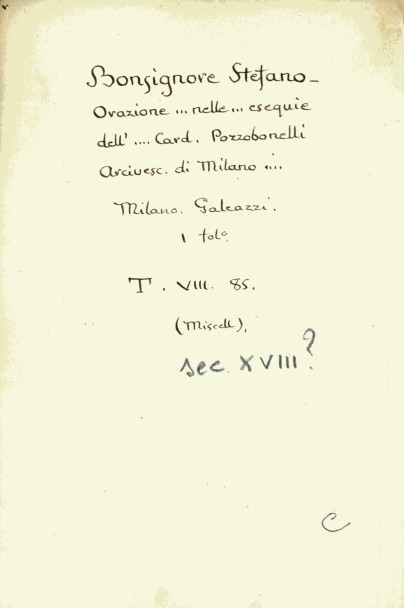 Bonsignore Stefano_
Orazione ... nelle ... esequie
dell' .... Card. Pozzobonelli
Arcivesc. di Milano ....
Milano. Galeazzi.
1 folo
T. VIII. 85.
(Miscell),
sec. XVIII?
C